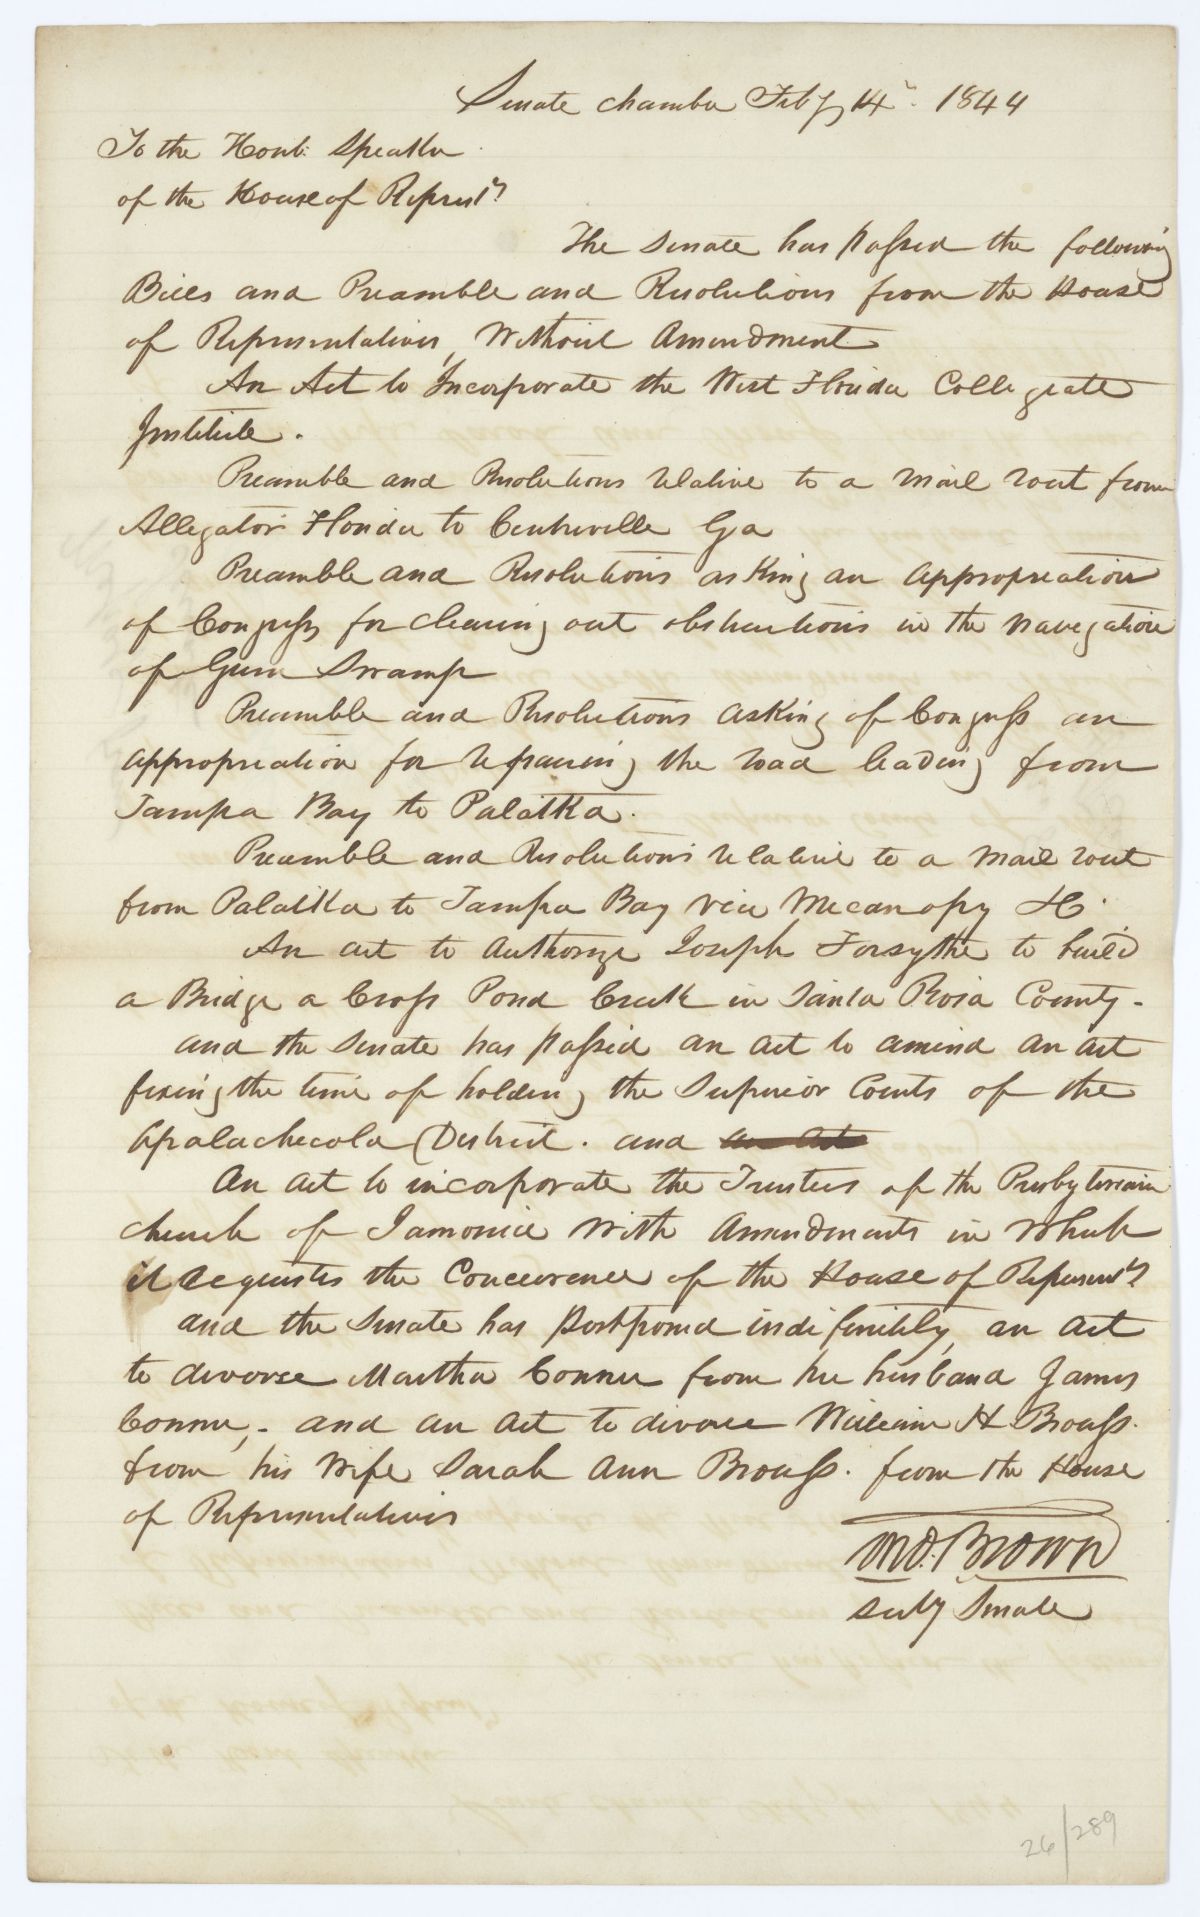 Senate chamber Feby 14th 1844
To the Honb. Speaker
of the House of Represt's
The Senate has passed the following
Bills and Preamble and Resolutions from the House
of Representatives, Without Amendment
An Act to Incorporate the West Florida Collegiate
Institute.
Preamble and Resolutions relative to a Mail rout from
Allegator Florida to Centreville Ga
Preamble and Resolutions asking an appropreation
of Congress for clearing out obstructions in the Navegation
of Gum Swamp
Preamble and Resolutions asking of Congress an
appropreation for repairing the road leading from
Tampa Bay to Palatka.
Preamble and Resolutions relative to a mail rout
from Palatka to Tampa Bay via Mecanopy
An act to authorize Joseph Forsythe to build
a Bridge a Cross Pond Creek in Santa Rosa County -
and the Senate has passed an act to amend an act
fixing the time of holding the Superior Courts of the
Apalachecola District. and an act
An act to incorporate the Trustees of the Presbyterian
church of Iamonia With Amendments in Which
it requests the Concurrence of the House of Represent's
and the Senate has postponed indefinitely, an act
to divorce Martha Conner from her husband James
Conner, - and an act to divorce William H
from his Wife Sarah Ann from the House
of Representatives
Brown
Secty Senate
26/289